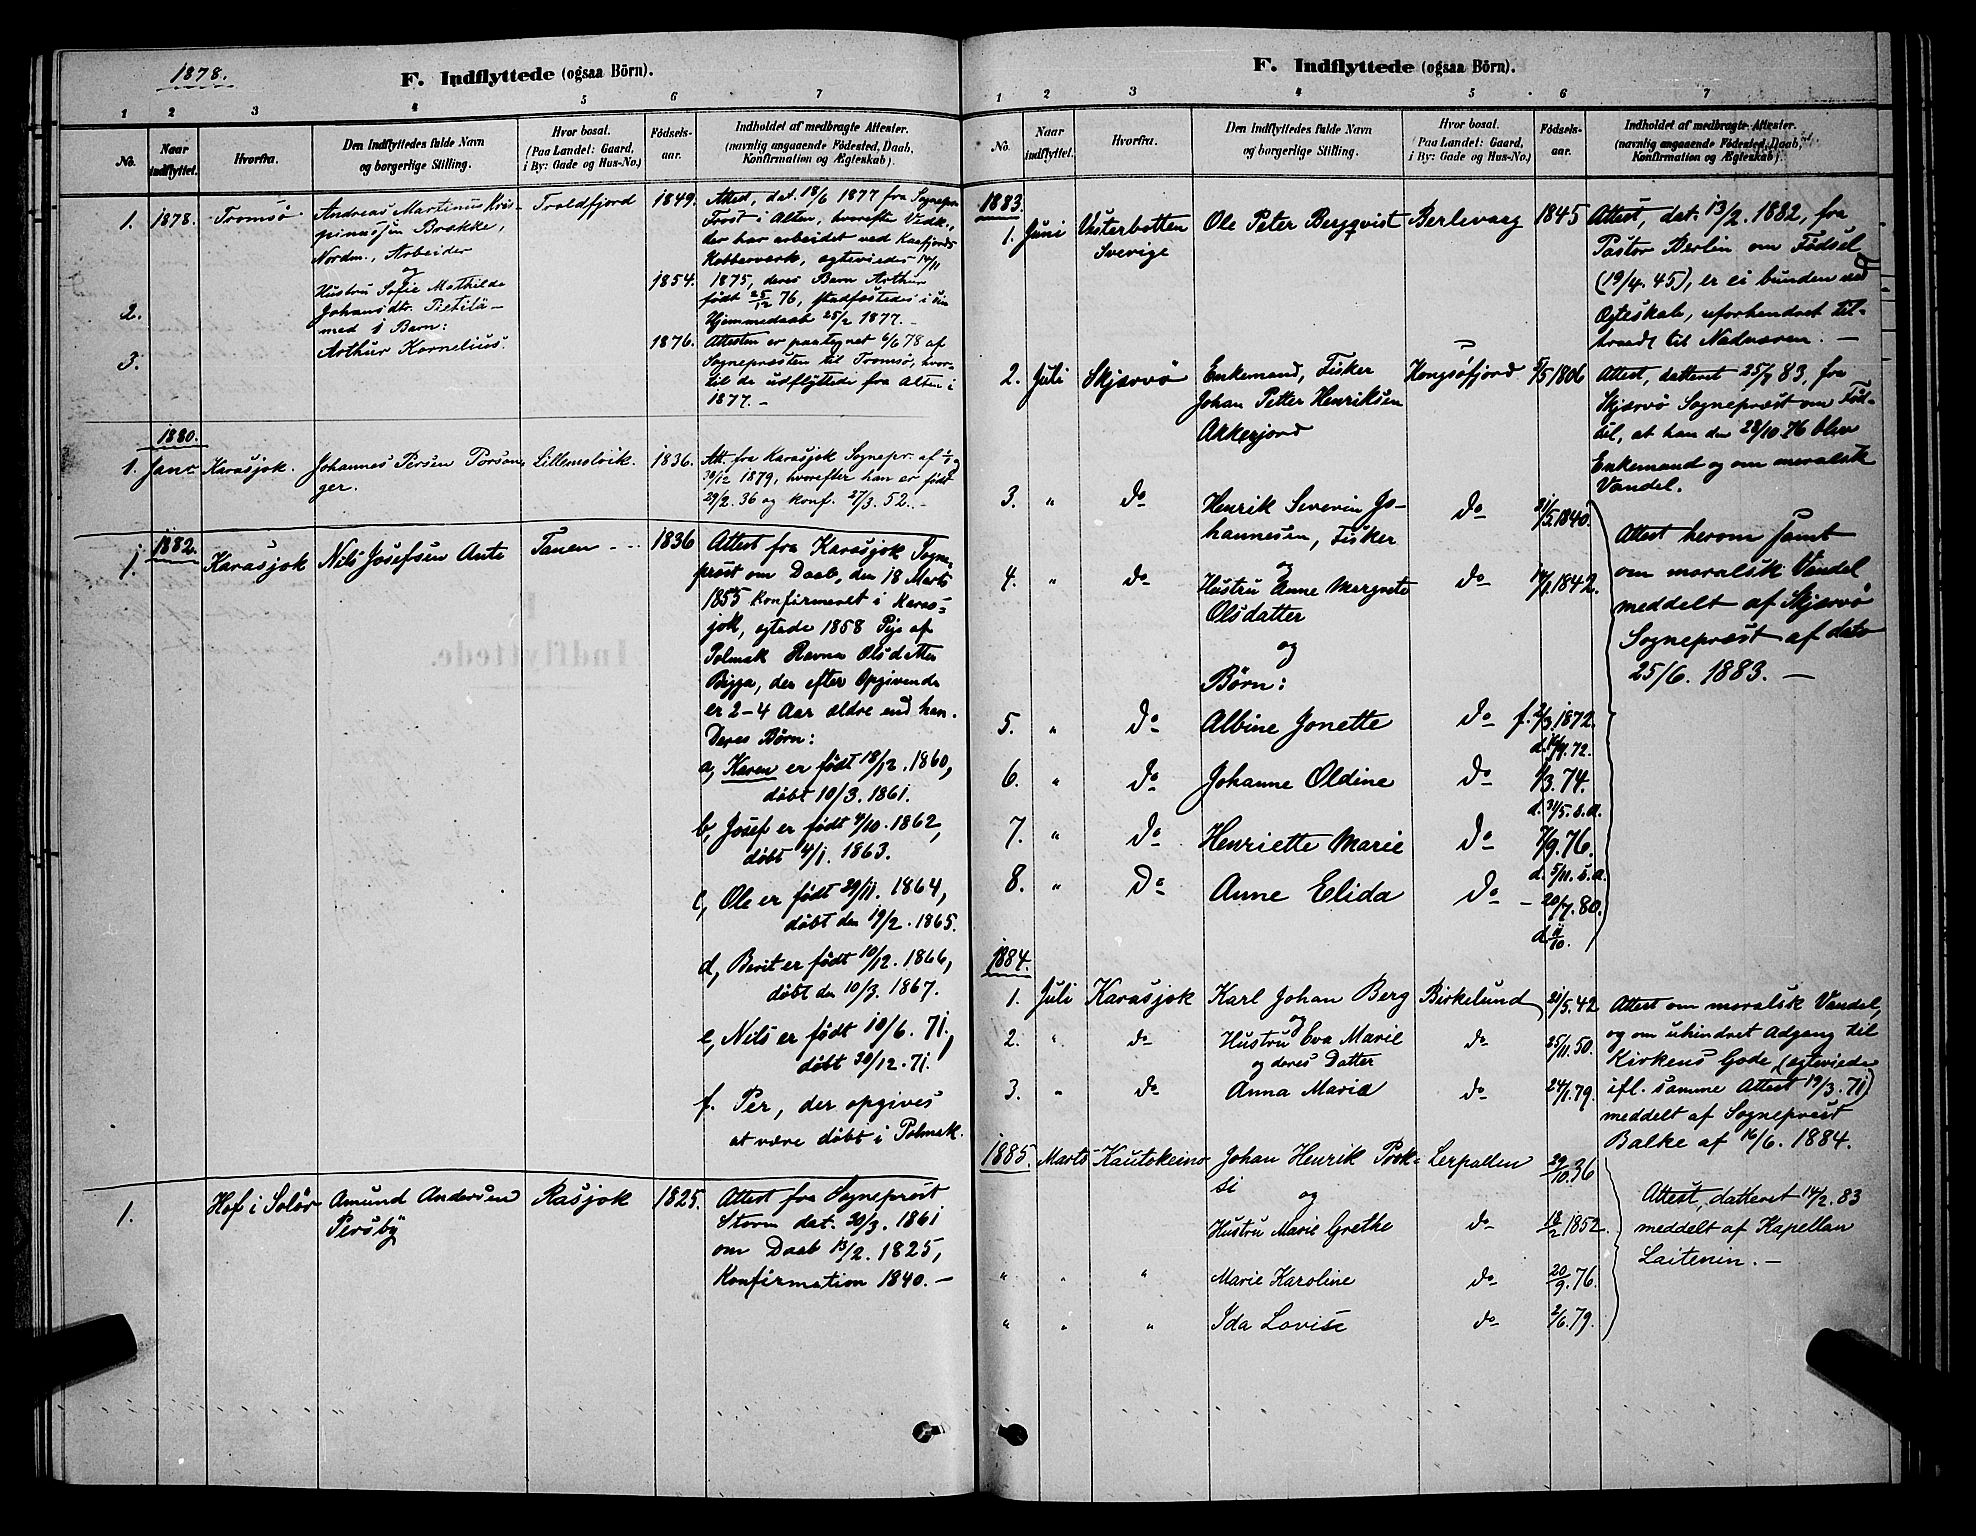 1878.
F. Indflyttede (ogsaa Börn).
1 2 3 4 5 6 7
No.
Naar indflyttet.
Hvorfra.
Den Indflyttedes fulde Navn
og borgerlige Stilling.
Hvor bosat.
(Paa Landet: Gaard,
i By: Gade og Hus-No.)
Födsels-
aar.
Indholdet af medbragte Attester.
(navnlig angaaende Födested, Daab,
Konfirmation og Ægteskab).
1. 1878. Tromsø
Andreas Martinus Kris-
pinussen Brække,
Nordm., Arbeider
og
Hustru Sofie Mathilde
Johansdtr. Pietilä –
med 1 Barn:
Arthur Kornelius.
2.
3.
Troldfjord
1849.
1854.
1876.
Attest, dat. 18/6 1877 fra Sognepr.
Trost i Alten, hvorefter Vedk.,
der har arbeidet ved Kaafjords
Kobberværk, egteviedes 14/11
1875, deres Barn Arthur
født 25/12 76, stadfæstedes i sin
Hjemmedaab 25/2 1877. –
Attesten er paategnet 6/6 78 af
Sognepræsten til Tromsø, hvor-
til de udflyttede fra Alten i
1877. –
1880.
1. Janr. Karasjok.
Johannes Persen Porsan-
ger.
Lillemolvik. 1836.
Att. fra Karasjok Sognepr. af
30/12 1879, hvorefter han er født
29/2. 36 og konf. 27/3. 52. –
1882.
1. Karasjok Nils Josefsen Ante Tanen - - 1836
Attest fra Karasjok Sogne-
præst om Daab, den 18 Marts
1855 konfirmeret i Karas-
jok, egtede 1858 Pige af
Polmak Ravna Olsdatter
Bigga, der efter Opgivende
er 2–4 Aar ældre end han.
Deres Børn:
a, Karen er født 18/12. 1860,
døbt 10/3. 1861.
b, Josef er født 4/10. 1862,
døbt 4/1. 1863.
c, Ole er født 29/11. 1864,
døbt den 19/2. 1865.
d, Berit er født 10/12. 1866,
døbt den 10/3. 1867.
e, Nils er født 10/6. 71,
døbt 30/12. 71.
f. Per, der opgives
at være døbt i Polmak.
1. Hof i Solør
Amund Andersen
Persby
Rasjok 1825.
Attest fra Sognepræst
Storm dat. 30/3. 1861
om Daab 13/2. 1825,
Konfirmation 1840. –
F. Indflyttede (ogsaa Börn).
1 2 3 4 5 6 7
No.
Naar indflyttet.
Hvorfra.
Den Indflyttedes fulde Navn
og borgerlige Stilling.
Hvor bosat.
(Paa Landet: Gaard,
i By: Gade og Hus-No.)
Födsels-
aar.
Indholdet af medbragte Attester.
(navnlig angaaende Födested, Daab,
Konfirmation og Ægteskab).
1883.
1. Juni Vesterbotten
Sverige
Ole Peter Bergqvist Berlevaag 1845
Attest, dat. 13/2. 1882, fra
Pastor Berlin om Fødsel
(19/4. 45), er ei bunden ved
Ægteskab, uforhendret til-
traadt til Nadveren. –
2. Juli Skjærvø
Enkemand, Fisker
Johan Petter Henriksen
Akkerjord
Kongsöfjord 5/5 1806
Attest, datteret 25/7 83, fra
Skjærvø Sognepræst om Fød-
til, at han den 28/10.76 blev
Enkemand og om moralsk
Vandel.
3. " do
Henrik Severin Jo-
hannesen, Fisker
do 21/5.1840.
og
4. " do
Hustru Anne Margrete
Olsdatter
do 14/1.1842.
og
Børn:
Attest herom samt
om moralsk Vandel
meddelt af Skjærvø
Sognepræst af dato
25/6. 1883. –
5. " do Albine Jonette do f. 2/3.1872.
6. " do Johanne Oldine do 1/3.74.
d. 31/5.s.a.
7. " do Henriette Marie do 7/9.76.
d. 5/11.s.a.
8. " do Anne Elida do – 20/7.80.
d. 11/10.
1884.
1. Juli Karasjok Karl Johan Berg Birkelund 21/5.42
og
2. " do Hustru Eva Marie do 25/11.50.
og deres Datter
3. " do Anna Maria do 24/1.79.
Attest om moralsk Vandel,
og om uhindret Adgang til
Kirkens Gode, (egteviede
ifl. samme Attest 19/3. 71)
meddelt af Sognepræst
Balke af 16/6. 1884.
1885. Marts Kautokeino
Johan Henrik Pook-
si
og
Lerpollen 29/10.36
Hustru Marie Grethe do 18/2 1852.
" " " Marie Karoline do 20/9.76.
" " " Ida Lovise do 2/6.79.
Attest, datteret 14/2. 83
meddelt af Kapellan
Laitenin. –